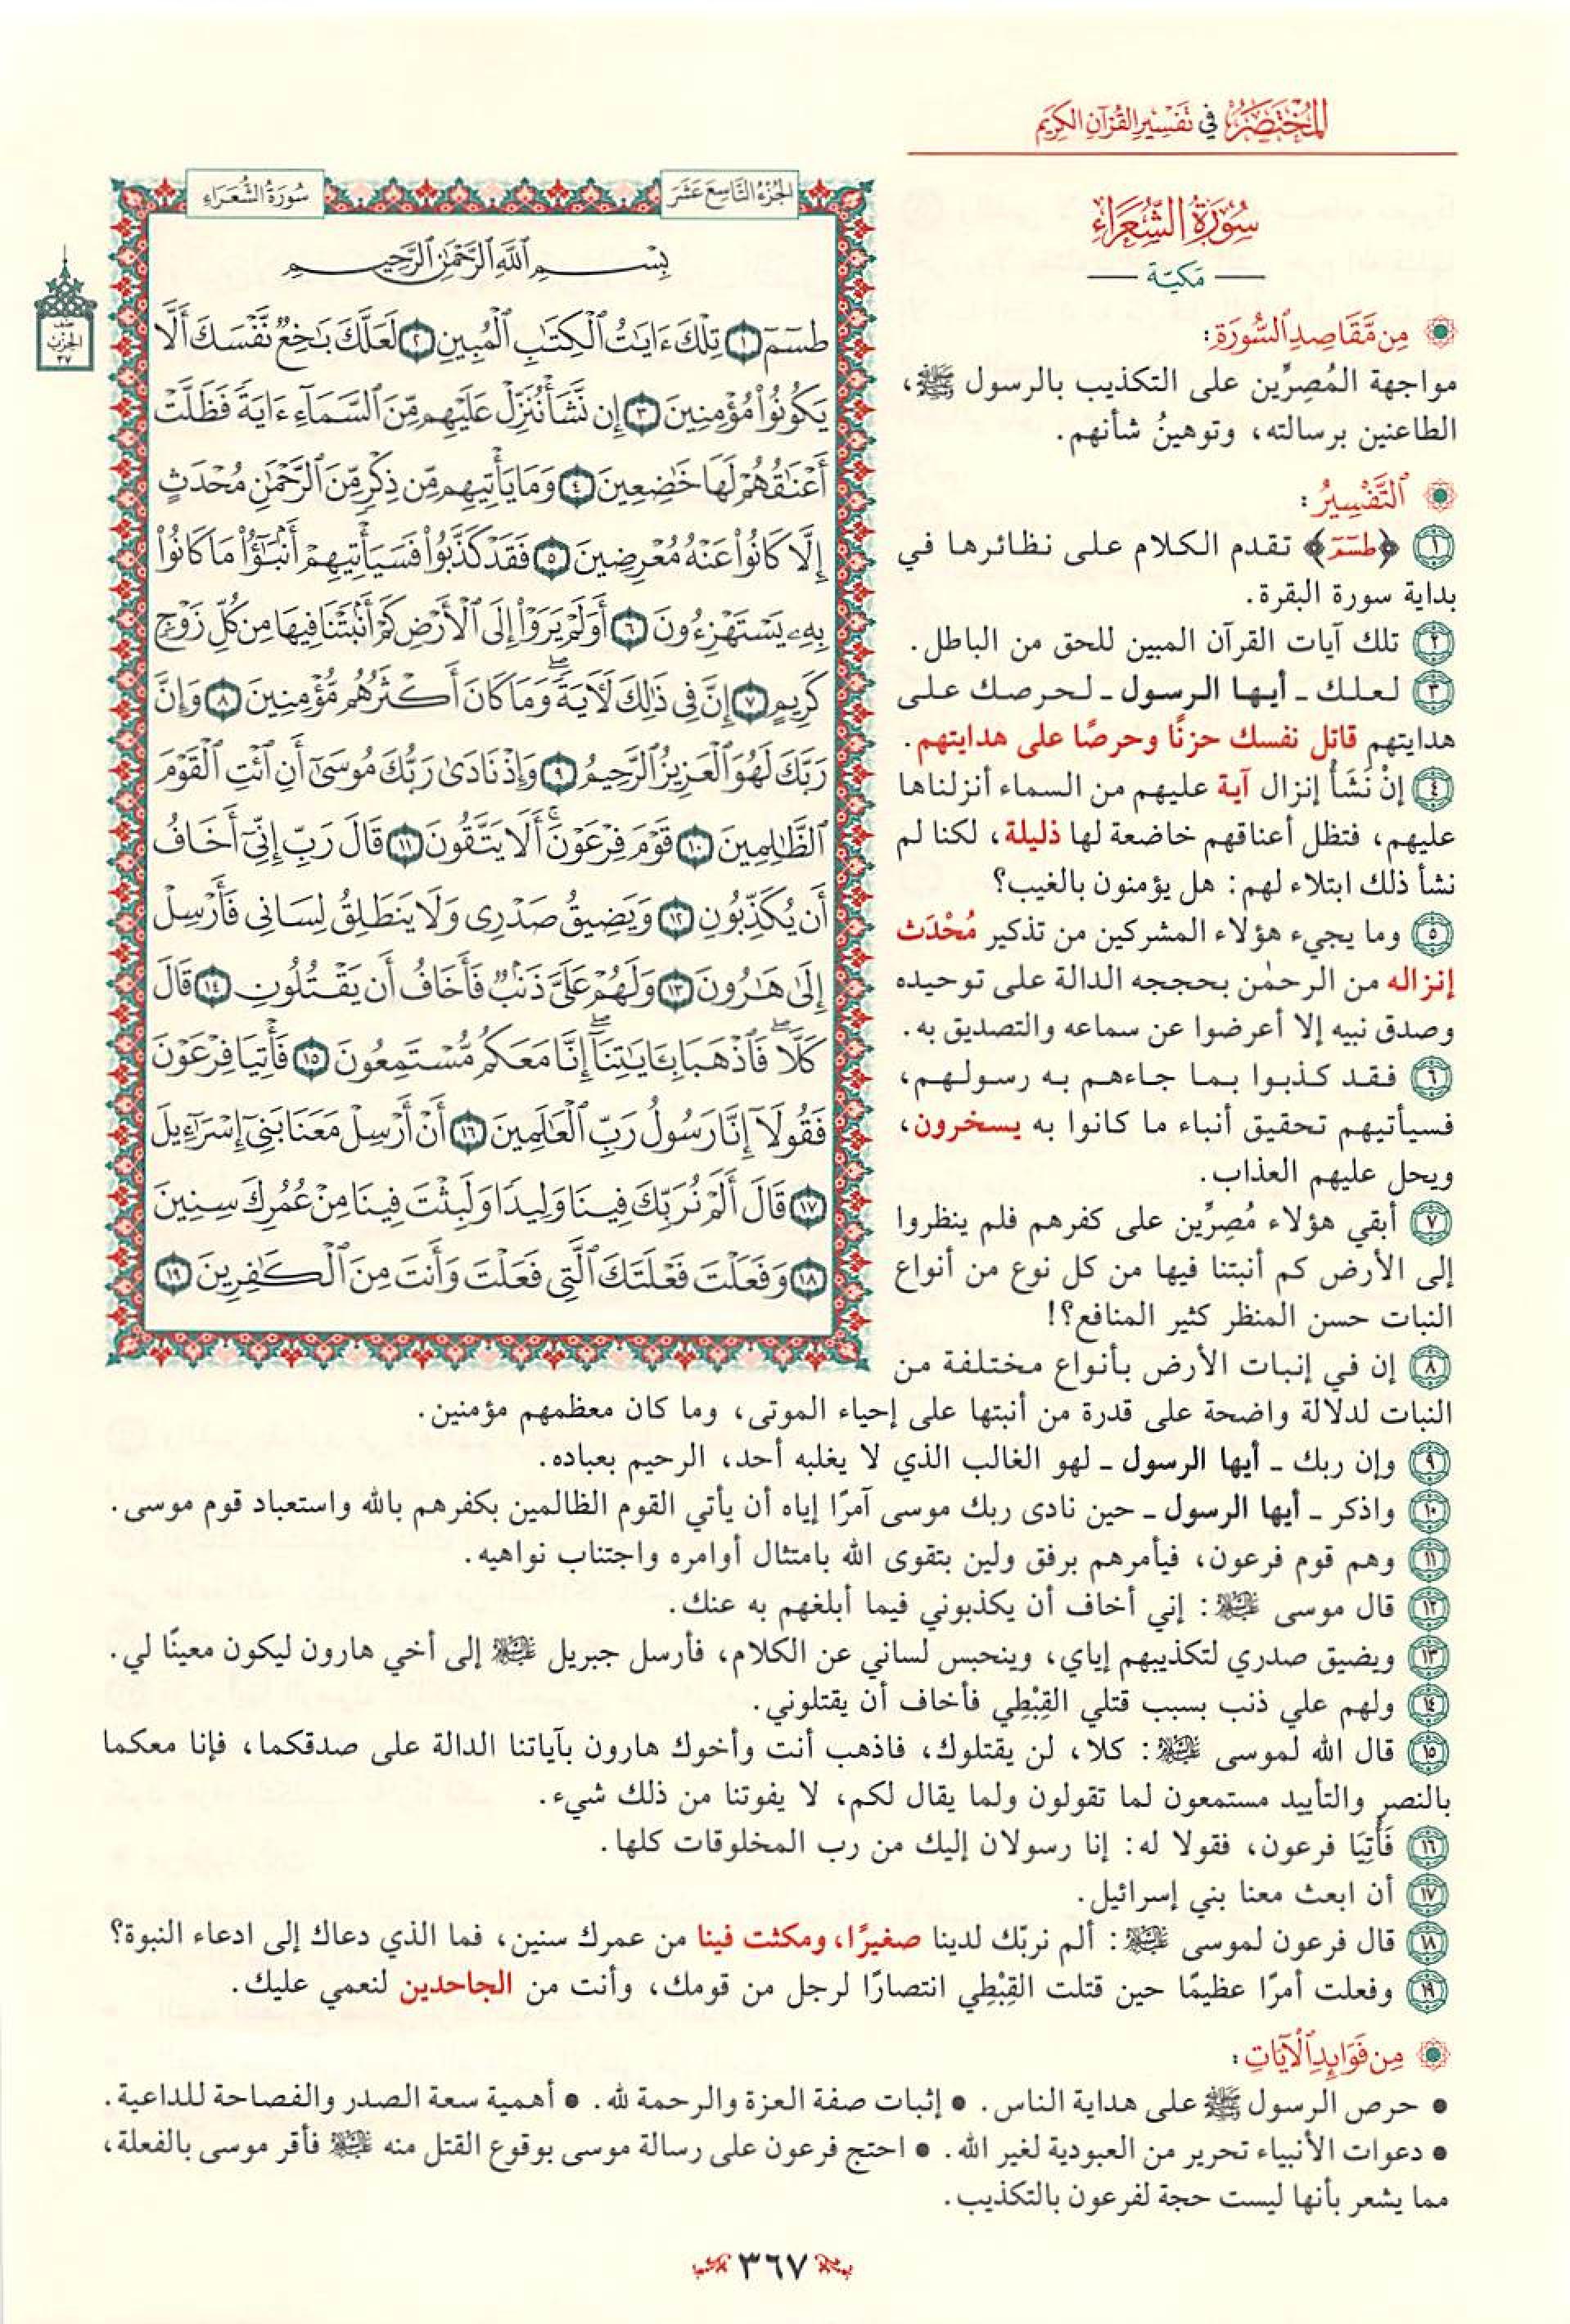 المختصر في تفسير القرآن الكريم
سُورَةُ الشُّعَرَاءِ
مَكِيّة
مِن مَّقَاصِدِ ٱلسُّورَةِ:
مواجهة المُصِرِّين على التكذيب بالرسول ﷺ،
الطاعنين برسالته، وتوهينُ شأنهم.
ٱلتَّفْسِيرُ:
١ ﴿طسٓمٓ﴾ تقدم الكلام على نظائرها في
بداية سورة البقرة.
٢ تلك آيات القرآن المبين للحق من الباطل.
٣ لعلك ـ أيها الرسول ـ لحرصك على
هدايتهم قاتل نفسك حزنًا وحرصًا على هدايتهم.
٤ إنْ نَشَأْ إنزال آية عليهم من السماء أنزلناها
عليهم، فتظل أعناقهم خاضعة لها ذليلة، لكنا لم
نشأ ذلك ابتلاء لهم: هل يؤمنون بالغيب؟
٥ وما يجيء هؤلاء المشركين من تذكير مُحْدَث
إنزاله من الرحمٰن بحججه الدالة على توحيده
وصدق نبيه إلا أعرضوا عن سماعه والتصديق به.
٦ فقد كذبوا بما جاءهم به رسولهم،
فسيأتيهم تحقيق أنباء ما كانوا به يسخرون،
ويحل عليهم العذاب.
٧ أبقي هؤلاء مُصِرِّين على كفرهم فلم ينظروا
إلى الأرض كم أنبتنا فيها من كل نوع من أنواع
النبات حسن المنظر كثير المنافع؟!
٨ إن في إنبات الأرض بأنواع مختلفة من
النبات لدلالة واضحة على قدرة من أنبتها على إحياء الموتى، وما كان معظمهم مؤمنين.
٩ وإن ربك ـ أيها الرسول ـ لهو الغالب الذي لا يغلبه أحد، الرحيم بعباده.
١٠ واذكر ـ أيها الرسول ـ حين نادى ربك موسى آمرًا إياه أن يأتي القوم الظالمين بكفرهم بالله واستعباد قوم موسى.
١١ وهم قوم فرعون، فيأمرهم برفق ولين بتقوى الله بامتثال أوامره واجتناب نواهيه.
١٢ قال موسى عليه السلام: إني أخاف أن يكذبوني فيما أبلغهم به عنك.
١٣ ويضيق صدري لتكذيبهم إياي، وينحبس لساني عن الكلام، فأرسل جبريل عليه السلام إلى أخي هارون ليكون معينًا لي.
١٤ ولهم علي ذنب بسبب قتلي القِبْطِي فأخاف أن يقتلوني.
١٥ قال الله لموسى عليه السلام: كلا، لن يقتلوك، فاذهب أنت وأخوك هارون بآياتنا الدالة على صدقكما، فإنا معكما
بالنصر والتأييد مستمعون لما تقولون ولما يقال لكم، لا يفوتنا من ذلك شيء.
١٦ فَأْتِيَا فرعون، فقولا له: إنا رسولان إليك من رب المخلوقات كلها.
١٧ أن ابعث معنا بني إسرائيل.
١٨ قال فرعون لموسى عليه السلام: ألم نربّك لدينا صغيرًا، ومكثت فينا من عمرك سنين، فما الذي دعاك إلى ادعاء النبوة؟
١٩ وفعلت أمرًا عظيمًا حين قتلت القِبْطِي انتصارًا لرجل من قومك، وأنت من الجاحدين لنعمي عليك.
مِن فَوَائِدِ ٱلْآيَاتِ:
• حرص الرسول ﷺ على هداية الناس. • إثبات صفة العزة والرحمة لله. • أهمية سعة الصدر والفصاحة للداعية.
• دعوات الأنبياء تحرير من العبودية لغير الله. • احتج فرعون على رسالة موسى بوقوع القتل منه عليه السلام فأقر موسى بالفعلة،
مما يشعر بأنها ليست حجة لفرعون بالتكذيب.
الجُزْءُ التَّاسِعَ عَشَرَ
سُورَةُ الشُّعَرَاءِ
نصف الحزب ٣٧
بِسْمِ ٱللَّهِ ٱلرَّحْمَٰنِ ٱلرَّحِيمِ
طسٓمٓ ١ تِلْكَ ءَايَٰتُ ٱلْكِتَٰبِ ٱلْمُبِينِ ٢ لَعَلَّكَ بَٰخِعٌ نَّفْسَكَ أَلَّا
يَكُونُوا۟ مُؤْمِنِينَ ٣ إِن نَّشَأْ نُنَزِّلْ عَلَيْهِم مِّنَ ٱلسَّمَآءِ ءَايَةً فَظَلَّتْ
أَعْنَٰقُهُمْ لَهَا خَٰضِعِينَ ٤ وَمَا يَأْتِيهِم مِّن ذِكْرٍ مِّنَ ٱلرَّحْمَٰنِ مُحْدَثٍ
إِلَّا كَانُوا۟ عَنْهُ مُعْرِضِينَ ٥ فَقَدْ كَذَّبُوا۟ فَسَيَأْتِيهِمْ أَنۢبَٰٓؤُا۟ مَا كَانُوا۟
بِهِۦ يَسْتَهْزِءُونَ ٦ أَوَلَمْ يَرَوْا۟ إِلَى ٱلْأَرْضِ كَمْ أَنۢبَتْنَا فِيهَا مِن كُلِّ زَوْجٍ
كَرِيمٍ ٧ إِنَّ فِى ذَٰلِكَ لَءَايَةً ۖ وَمَا كَانَ أَكْثَرُهُم مُّؤْمِنِينَ ٨ وَإِنَّ
رَبَّكَ لَهُوَ ٱلْعَزِيزُ ٱلرَّحِيمُ ٩ وَإِذْ نَادَىٰ رَبُّكَ مُوسَىٰٓ أَنِ ٱئْتِ ٱلْقَوْمَ
ٱلظَّٰلِمِينَ ١٠ قَوْمَ فِرْعَوْنَ ۚ أَلَا يَتَّقُونَ ١١ قَالَ رَبِّ إِنِّىٓ أَخَافُ
أَن يُكَذِّبُونِ ١٢ وَيَضِيقُ صَدْرِى وَلَا يَنطَلِقُ لِسَانِى فَأَرْسِلْ
إِلَىٰ هَٰرُونَ ١٣ وَلَهُمْ عَلَىَّ ذَنۢبٌ فَأَخَافُ أَن يَقْتُلُونِ ١٤ قَالَ
كَلَّا ۖ فَٱذْهَبَا بِـَٔايَٰتِنَآ ۖ إِنَّا مَعَكُم مُّسْتَمِعُونَ ١٥ فَأْتِيَا فِرْعَوْنَ
فَقُولَآ إِنَّا رَسُولُ رَبِّ ٱلْعَٰلَمِينَ ١٦ أَنْ أَرْسِلْ مَعَنَا بَنِىٓ إِسْرَٰٓءِيلَ
١٧ قَالَ أَلَمْ نُرَبِّكَ فِينَا وَلِيدًا وَلَبِثْتَ فِينَا مِنْ عُمُرِكَ سِنِينَ
١٨ وَفَعَلْتَ فَعْلَتَكَ ٱلَّتِى فَعَلْتَ وَأَنتَ مِنَ ٱلْكَٰفِرِينَ ١٩
٣٦٧